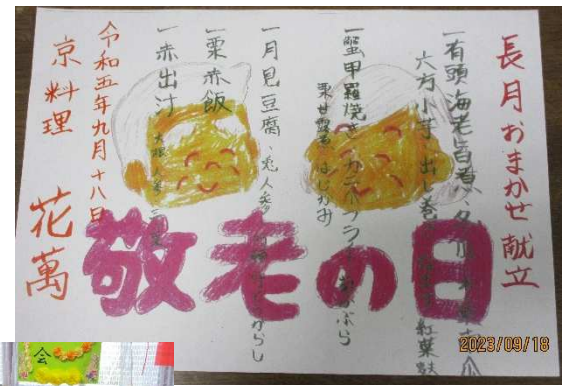 長月おまかせ献立
一有頭海老旨煮、
六方小芋、出し巻 紅葉麩
一蟹甲羅焼き、カニフライ
栗甘露煮 はじかみ
一月見豆腐、兎人参 からし
一栗赤飯
一赤出汁 大根 人参 三つ葉
令和五年九月十八日
京料理 花萬
敬老の日
2023/09/18
会